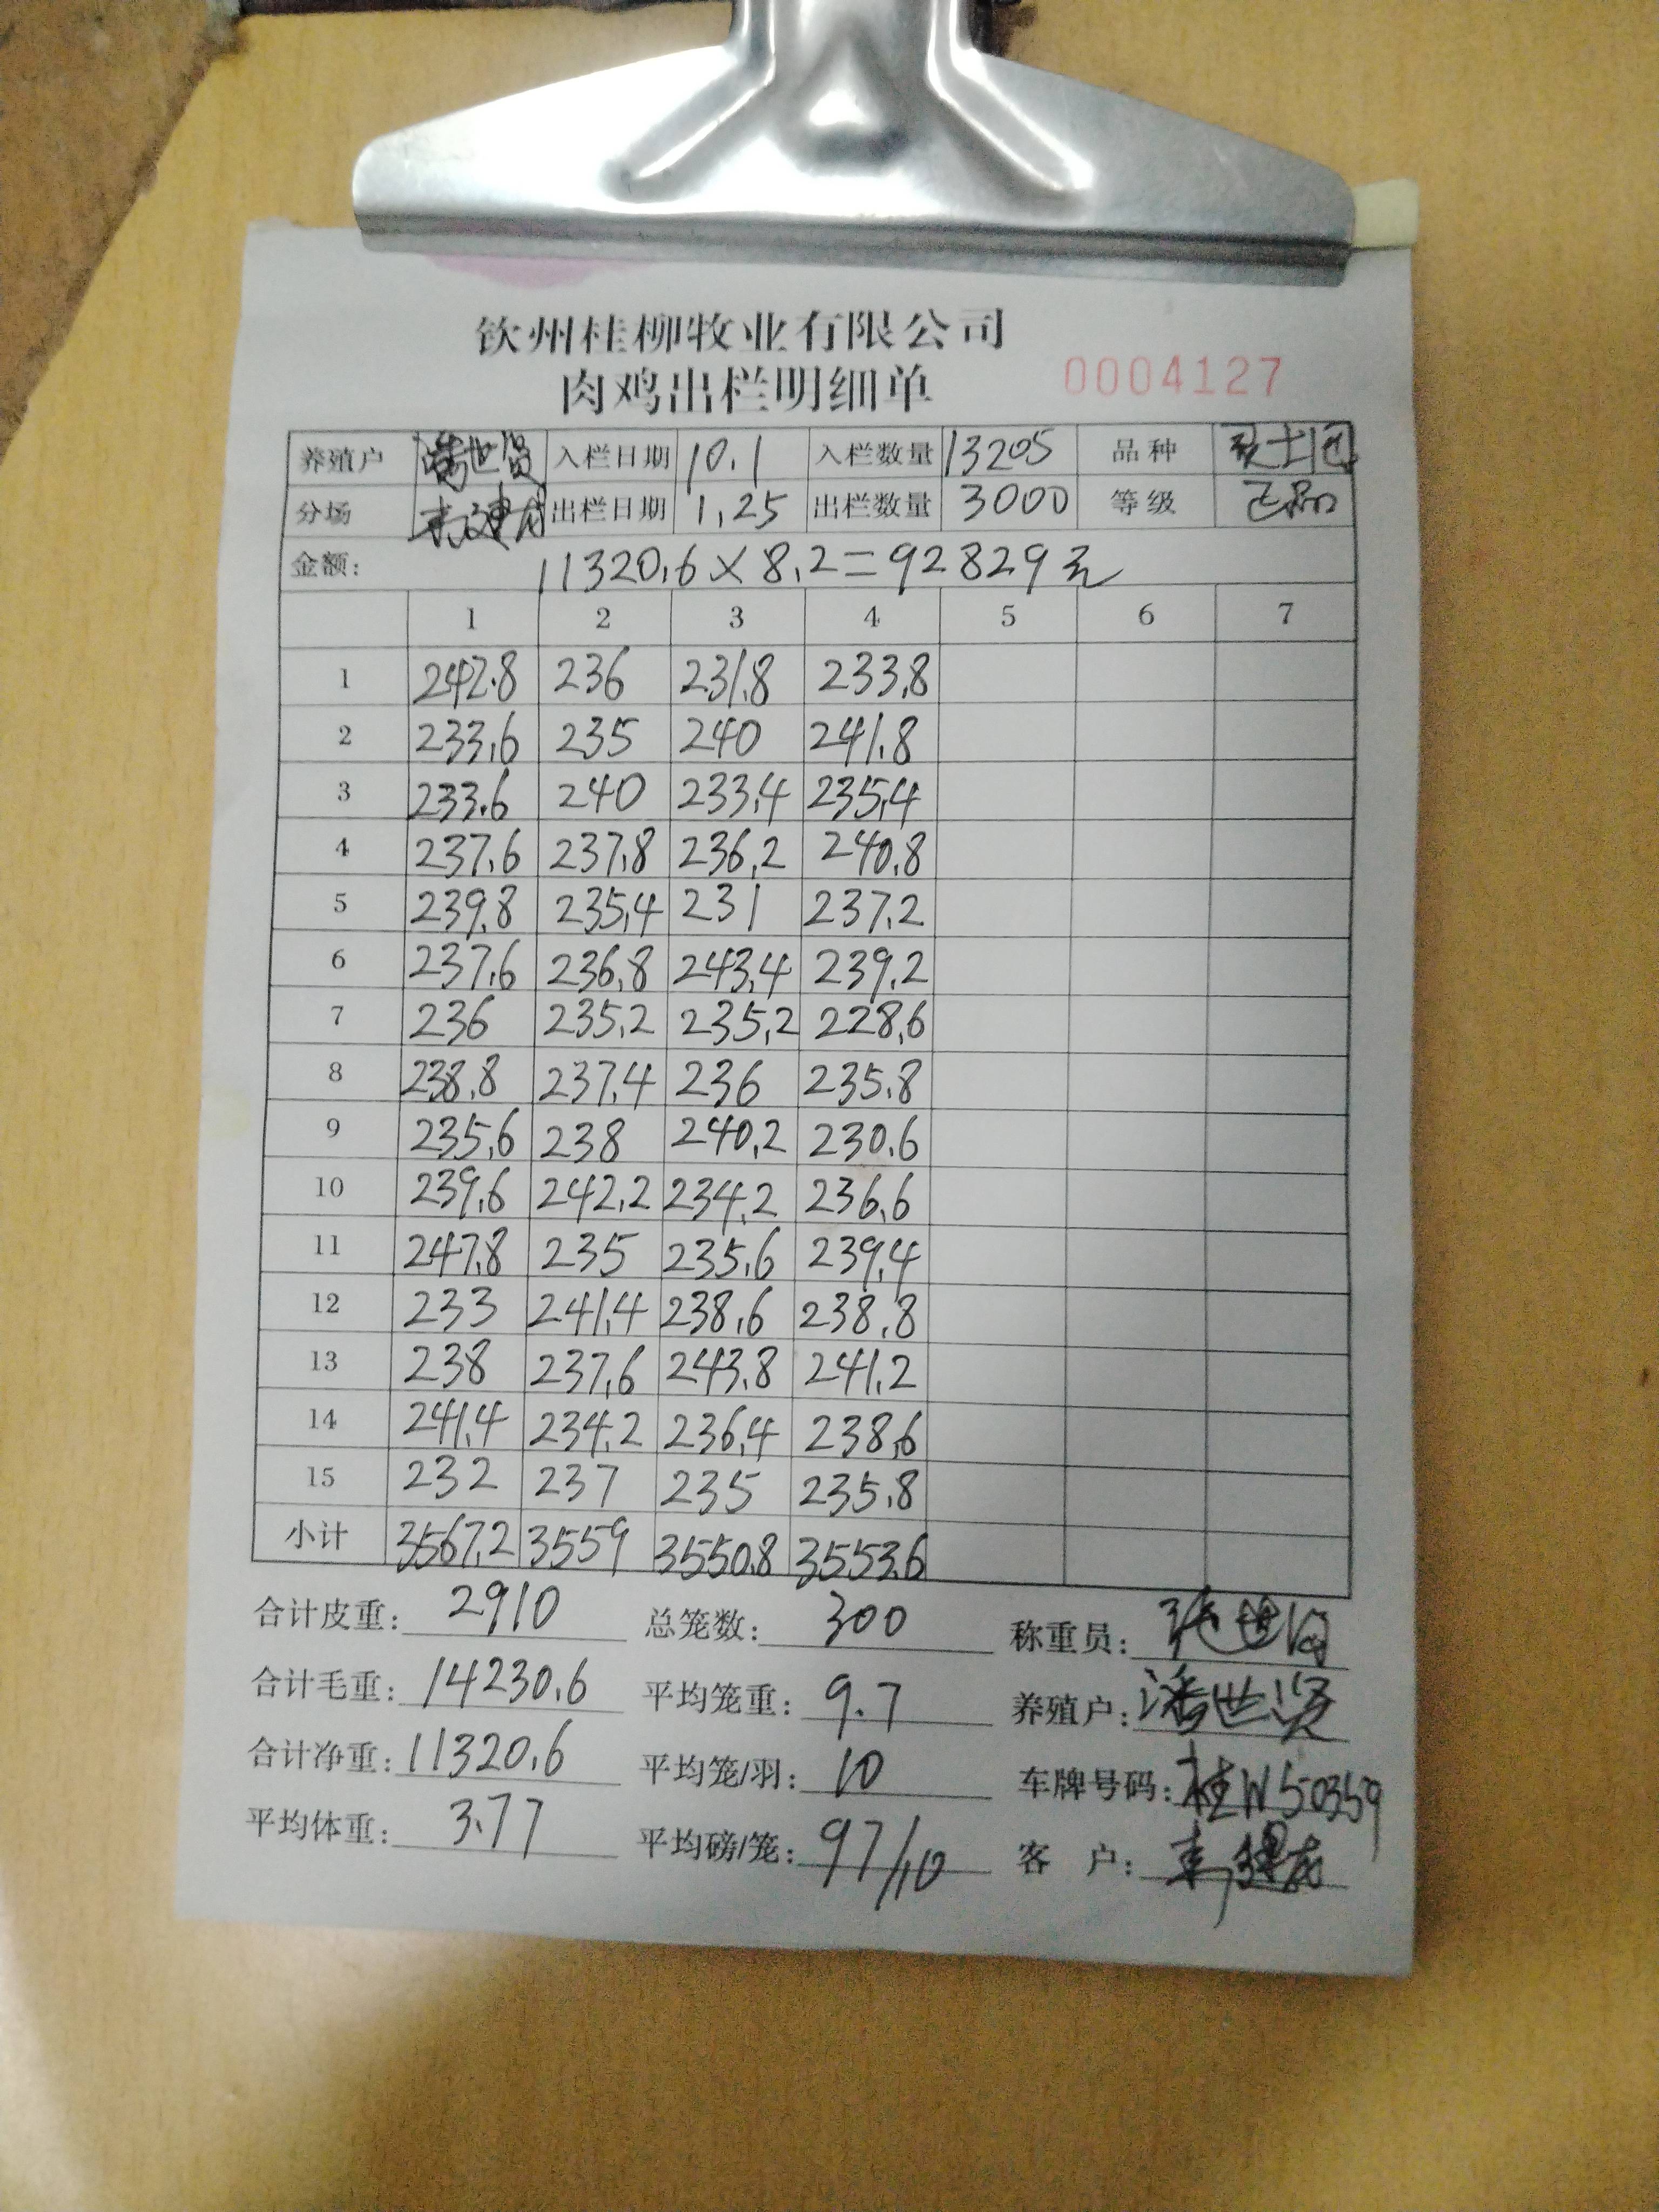 钦州桂柳牧业有限公司
肉鸡出栏明细单 0004127
养殖户 潘世贤 入栏日期 10.1 入栏数量 13205 品种
分场 出栏日期 1.25 出栏数量 3000 等级 正品
金额: 11320.6×8.2=92829元
1 2 3 4 5 6 7
1 242.8 236 231.8 233.8
2 233.6 235 240 241.8
3 233.6 240 233.4 235.4
4 237.6 237.8 236.2 240.8
5 239.8 235.4 231 237.2
6 237.6 236.8 243.4 239.2
7 236 235.2 235.2 228.6
8 238.8 237.4 236 235.8
9 235.6 238 240.2 230.6
10 239.6 242.2 234.2 236.6
11 247.8 235 235.6 239.4
12 233 241.4 238.6 238.8
13 238 237.6 243.8 241.2
14 241.4 234.2 236.4 238.6
15 232 237 235 235.8
小计 3567.2 3559 3550.8 3553.6
合计皮重: 2910 总笼数: 300 称重员:
合计毛重: 14230.6 平均笼重: 9.7 养殖户: 潘世贤
合计净重: 11320.6 平均笼/羽: 10 车牌号码: 桂N50359
平均体重: 3.77 平均磅/笼: 97/10 客户: